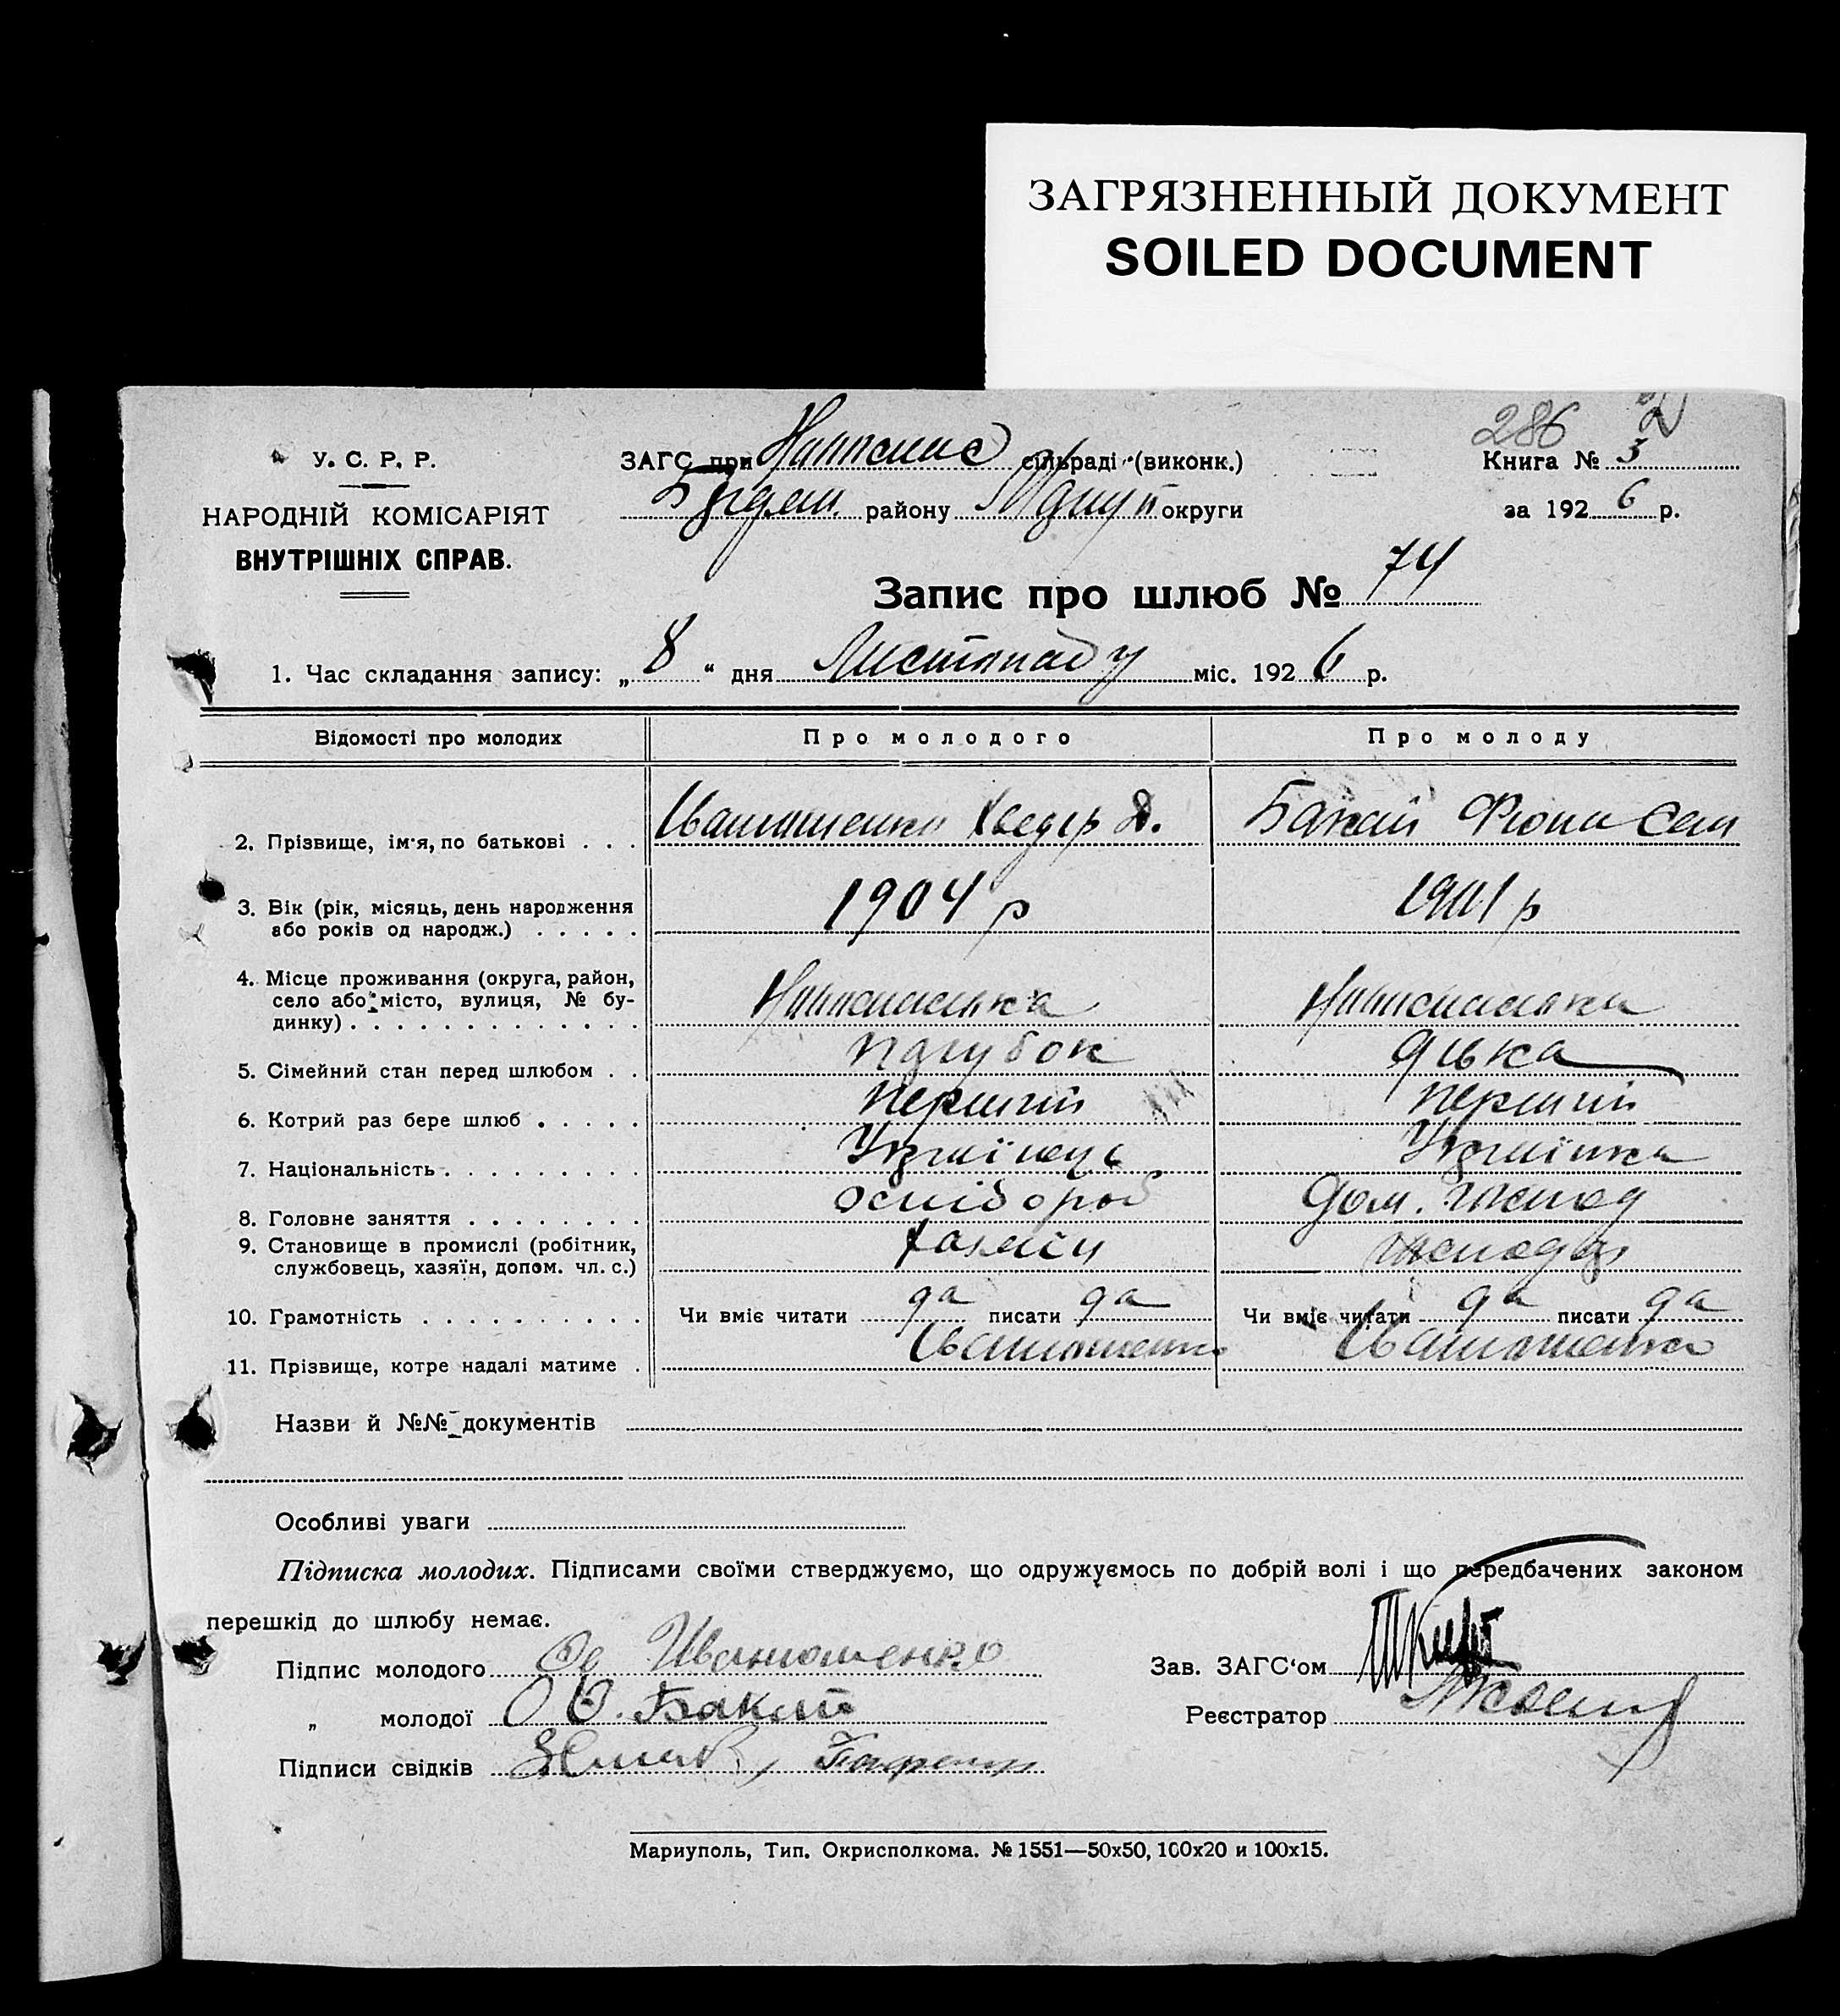 ЗАГРЯЗНЕННЫЙ ДОКУМЕНТ
SOILED DOCUMENT
286
У. С. Р. Р.
ЗАГС при сільраді (виконк.)
Книга № 3
НАРОДНІЙ КОМІСАРІЯТ
району округи
за 1926 р.
ВНУТРІШНІХ СПРАВ.
Запис про шлюб № 74
1. Час складання запису: „8“ дня Листопаду міс. 1926 р.
Відомості про молодих Про молодого Про молоду
2. Прізвище, ім'я, по батькові . . . Иванюшенко Хведір Д. Бакай
3. Вік (рік, місяць, день народження
або років од народж.) . . . . . 1904 р 1901 р
4. Місце проживання (округа, район,
село або місто, вулиця, № бу-
динку) . . . . . . . . . . . . .
5. Сімейний стан перед шлюбом . . Парубок Дівка
6. Котрий раз бере шлюб . . . . . Перший Перший
7. Національність . . . . . . . . . Українець Українка
8. Головне заняття . . . . . . . . Дом.
9. Становище в промислі (робітник,
службовець, хазяїн, допом. чл. с.) Хазяїн
10. Грамотність . . . . . . . . . . Чи вміє читати да писати да Чи вміє читати да писати да
11. Прізвище, котре надалі матиме . Иванюшенко Иванюшенко
Назви й №№ документів
Особливі уваги
Підписка молодих. Підписами своїми стверджуємо, що одружуємось по добрій волі і що передбачених законом
перешкід до шлюбу немає.
Підпис молодого Иванюшенко Зав. ЗАГС‘ом
„ молодої Бакай Реєстратор
Підписи свідків
Мариуполь, Тип. Окрисполкома. № 1551—50х50, 100х20 и 100х15.